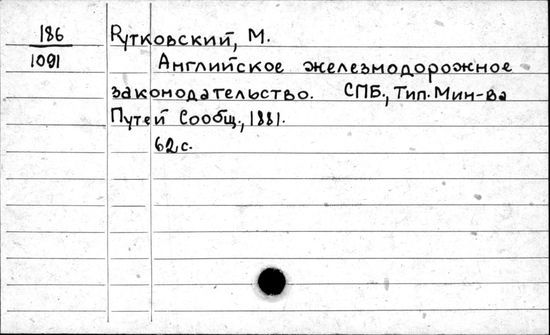 186
1091
Рутковский, М.
Английское железнодорожное
законодательство. СПБ., Тип. Мин-ва
Путей Сообщ., 1881.
62 с.